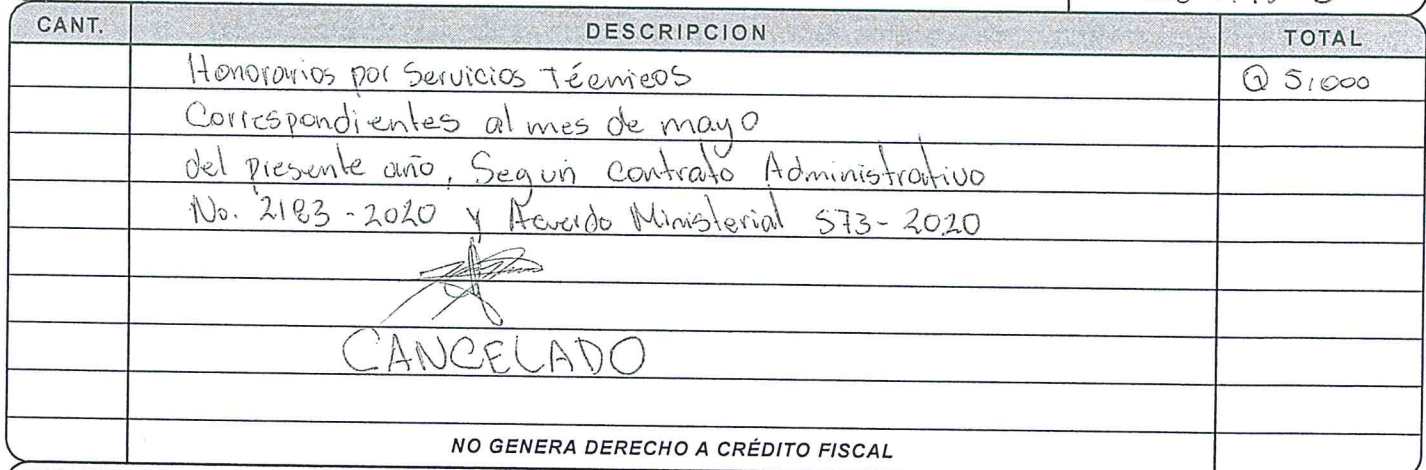 CANT. DESCRIPCION TOTAL
Honorarios por Servicios Técnicos Q 5,000
Correspondientes al mes de mayo
del presente año, Según Contrato Administrativo
No. 2183-2020 y Acuerdo Ministerial 573-2020
CANCELADO
NO GENERA DERECHO A CRÉDITO FISCAL